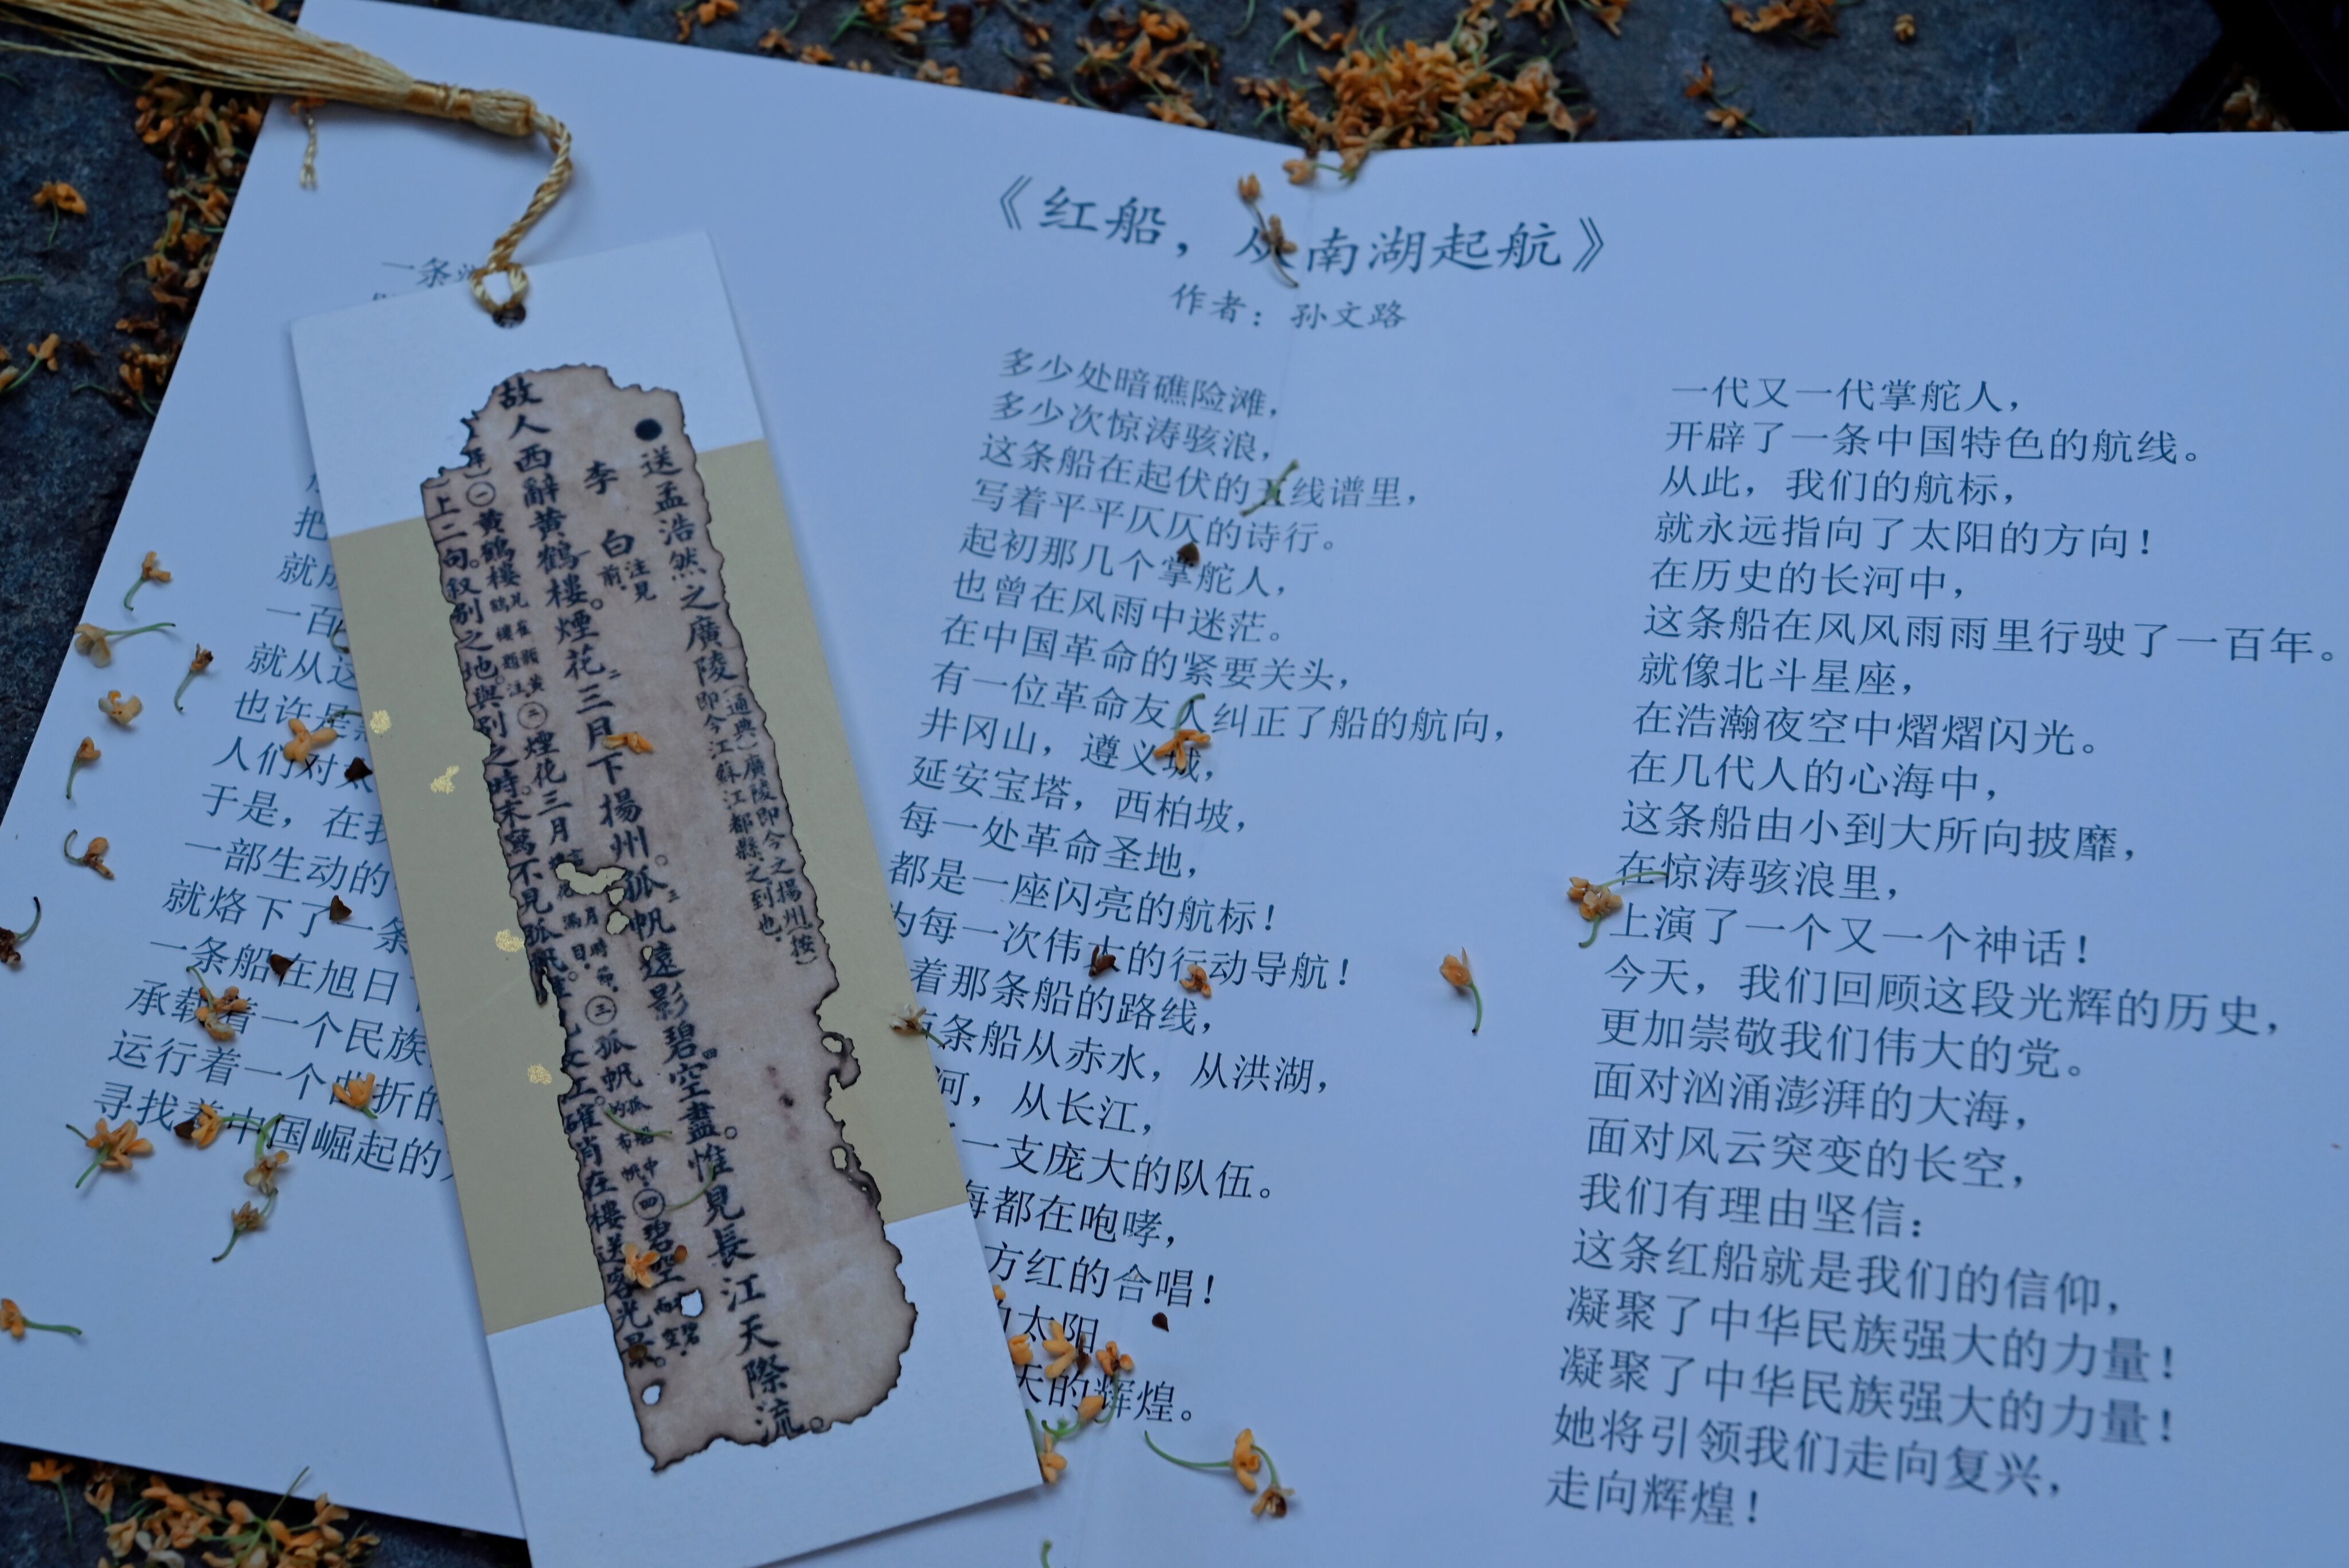 《红船，从南湖起航》
作者：孙文路
一条
把
就
一百
就从这
也许是
人们对太
于是，在我
一部生动的
就烙下了一条
一条船在旭日
承载着一个民族
运行着一个曲折的
寻找着中国崛起的
多少处暗礁险滩，
多少次惊涛骇浪，
这条船在起伏的五线谱里，
写着平平仄仄的诗行。
起初那几个掌舵人，
也曾在风雨中迷茫。
在中国革命的紧要关头，
有一位革命友人纠正了船的航向，
井冈山，遵义城，
延安宝塔，西柏坡，
每一处革命圣地，
都是一座闪亮的航标！
为每一次伟大的行动导航！
着那条船的路线，
条船从赤水，从洪湖，
河，从长江，
一支庞大的队伍。
海都在咆哮，
方红的合唱！
太阳
天的辉煌。
一代又一代掌舵人，
开辟了一条中国特色的航线。
从此，我们的航标，
就永远指向了太阳的方向！
在历史的长河中，
这条船在风风雨雨里行驶了一百年。
就像北斗星座，
在浩瀚夜空中熠熠闪光。
在几代人的心海中，
这条船由小到大所向披靡，
在惊涛骇浪里，
上演了一个又一个神话！
今天，我们回顾这段光辉的历史，
更加崇敬我们伟大的党。
面对汹涌澎湃的大海，
面对风云突变的长空，
我们有理由坚信：
这条红船就是我们的信仰，
凝聚了中华民族强大的力量！
凝聚了中华民族强大的力量！
她将引领我们走向复兴，
走向辉煌！
●送孟浩然之廣陵
（通典）廣陵即今之揚州（按）
即今江蘇江都縣之到也。
李白
注見
前。
故人西辭黃鶴樓。煙花二三月下揚州。孤三帆遠影碧四空盡。惟見長江天際流。
㊀黃鶴樓
㊁煙花三月
㊂孤帆
㊃碧空
上二句。叙別之地。與別之時。末寫不見孤帆
在樓送客光景。